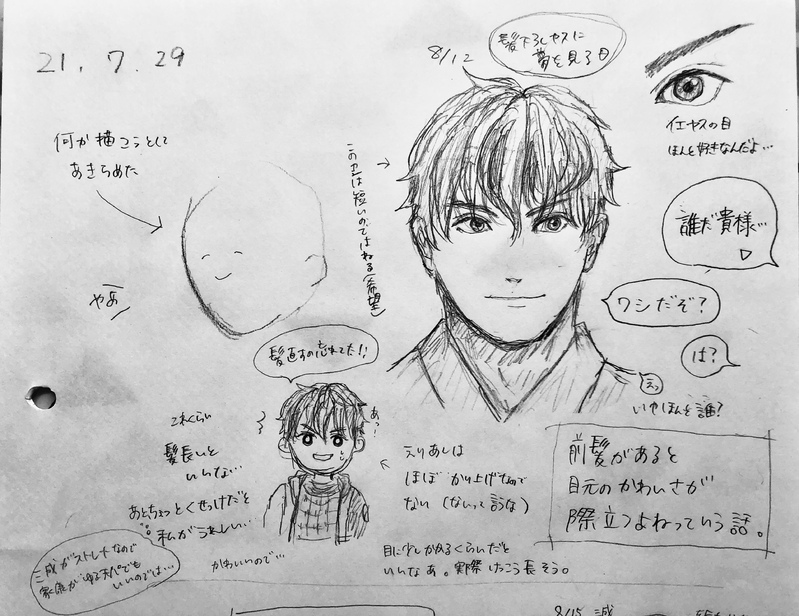 21.7.29
8/12
髪下ろしヤスに
夢を見る日
何か描こうとして
あきらめた
やあ
この辺は短いのではねる(希望)
イエヤスの目
ほんと好きなんだよ…
誰だ貴様ぐ…
ワシだぞ?
は?
えっ
いやほんと誰?
髪直すの忘れてた!!
これくらい
髪長いと
いいな…
あとちょっとくせっけだと
私がうれしい…
三成がストレートなので
家康がゆるパでも
いいのでは…
かわいいので…
あっ?
えりあしは
ほぼかり上げなので
ない(ないって言うな)
目に少しかかるくらいだと
いいなぁ。実際けっこう長そう。
前髪があると
目元のかわいさが
際立つよねっていう話。
8/15 誠